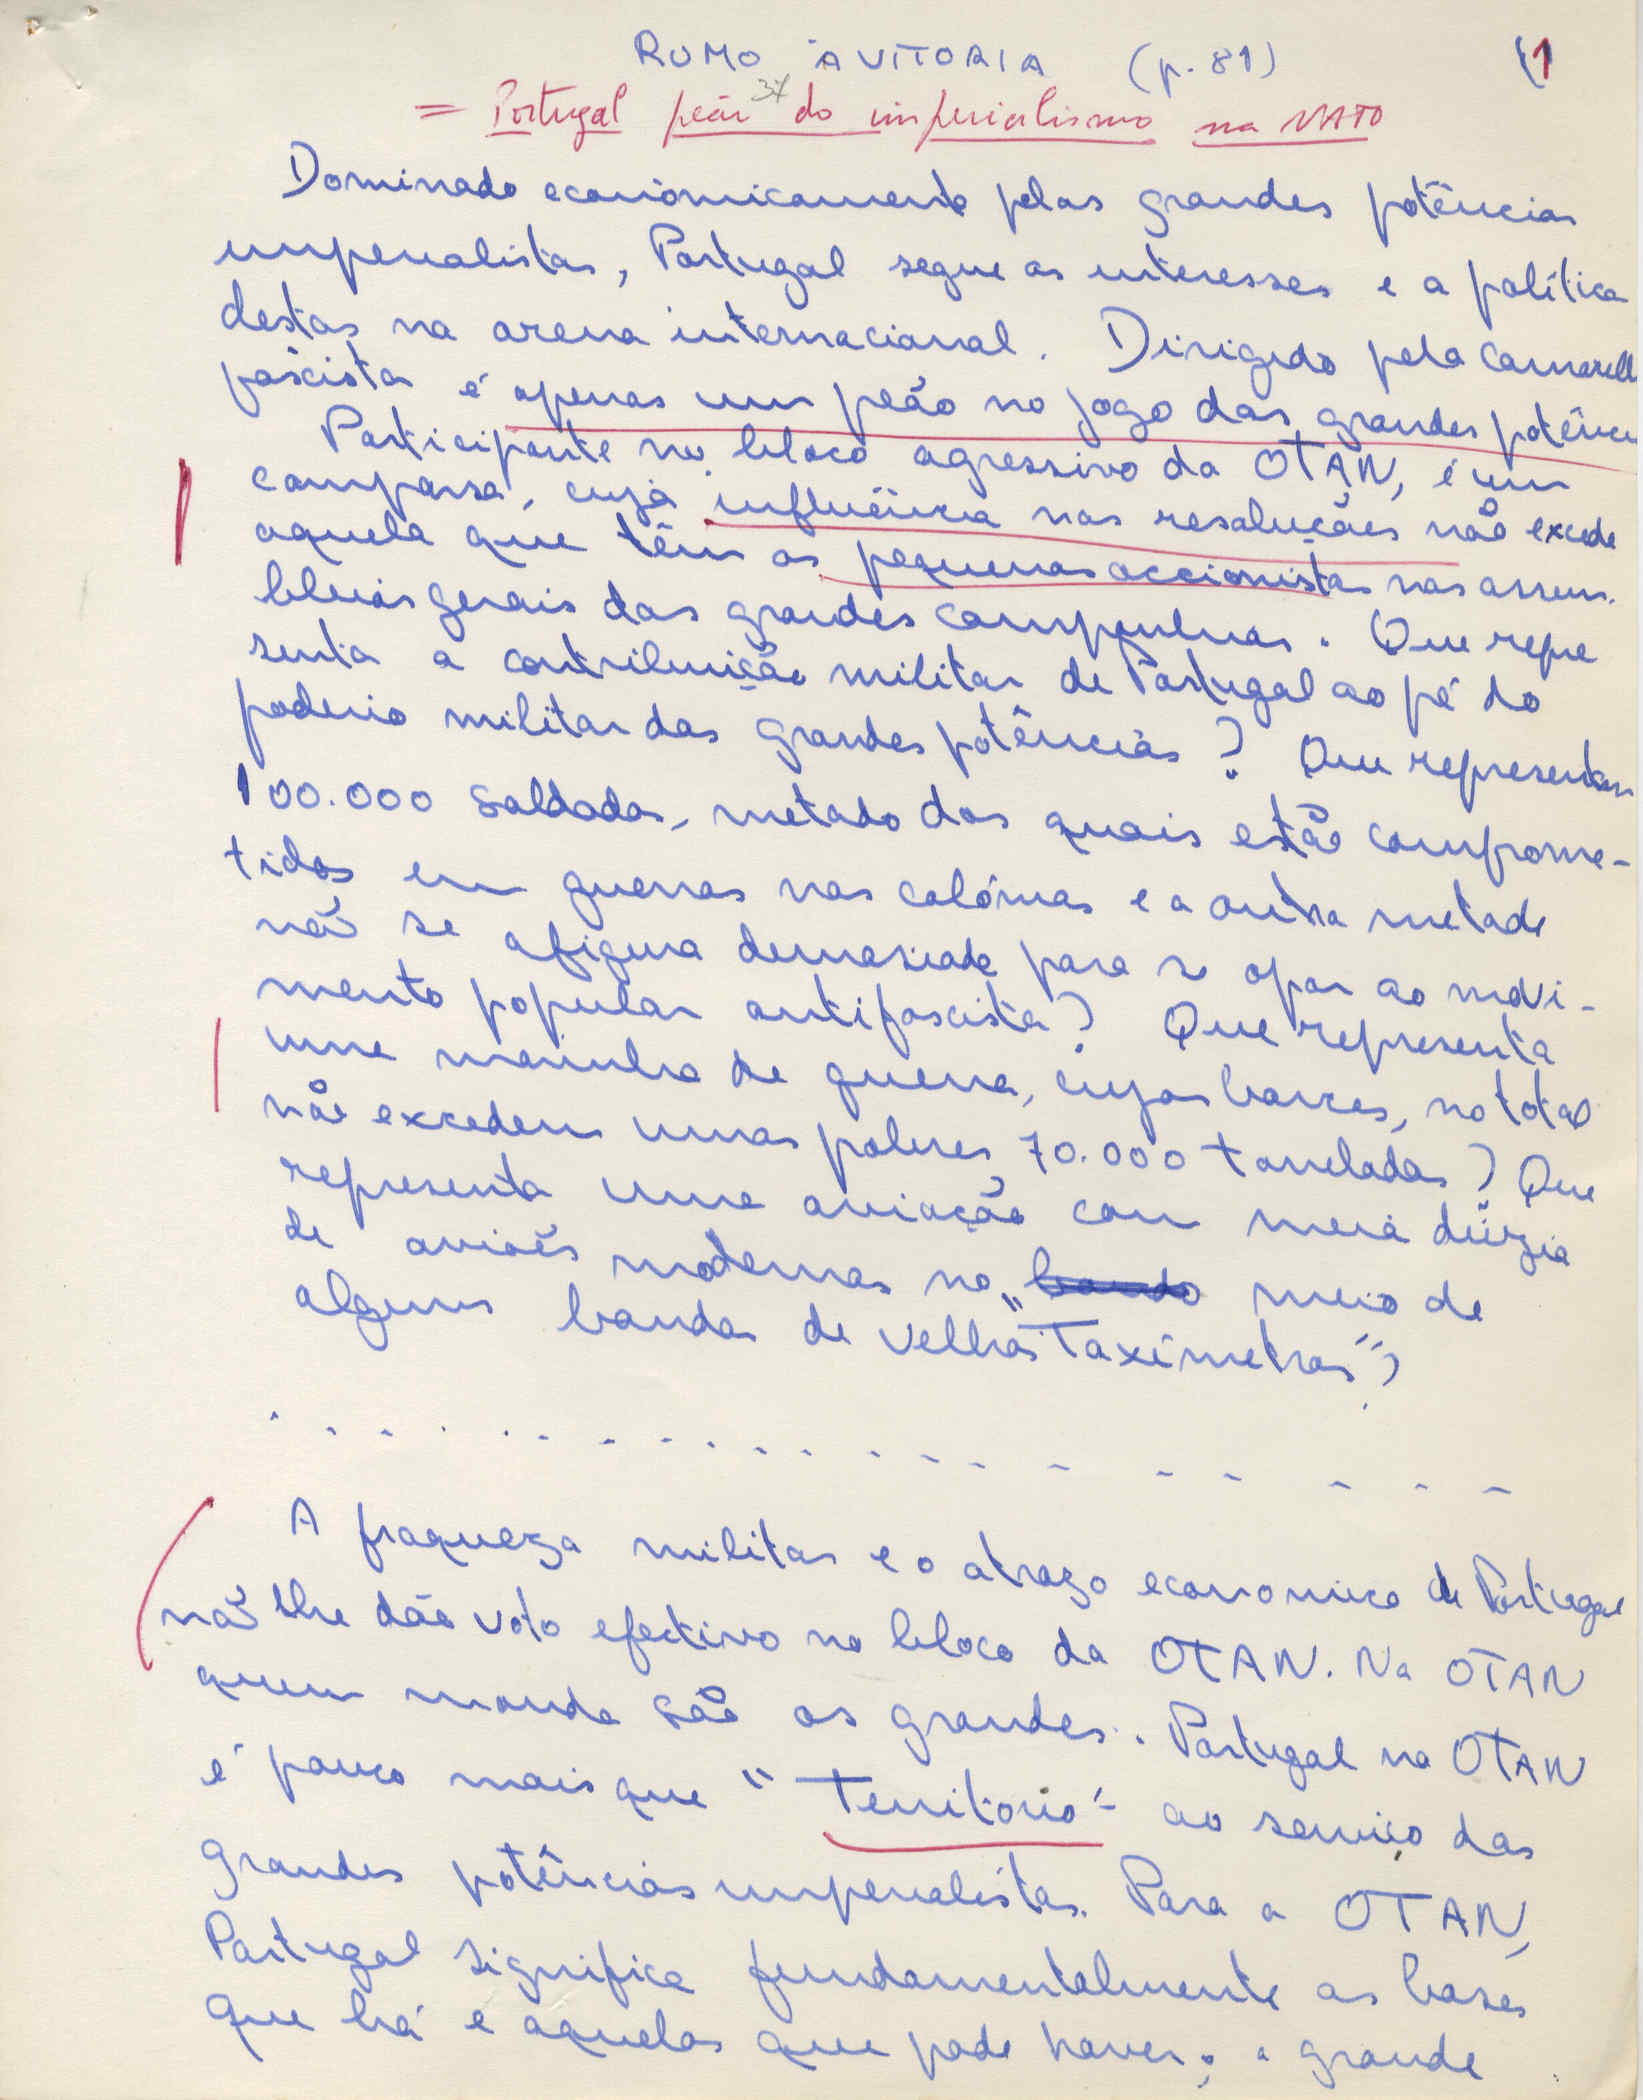 RUMO À VITORIA (p. 81) 1
37
= Portugal peão do imperialismo na NATO
Dominado económicamente pelas grandes potências
imperialistas, Portugal segue os interesses e a política
destas na arena internacional. Dirigido pela camarilh
fascista é apenas um peão no jogo das grandes potênci
Participante no bloco agressivo da OTAN, é um
comparsa, cuja influência nas resoluções não excede
aquela que têm os pequenos accionistas nas assem-
bleias gerais das grandes companhias. Que repre
senta a contribuição militar de Portugal ao pé do
poderio militar das grandes potências? Que representam
100.000 soldados, metade dos quais estão comprome-
tidos em guerras nas colónias e a outra metade
não se afigura demasiada para se opor ao movi-
mento popular antifascista? Que representa
uma marinha de guerra, cujos barcos, no total
não excedem umas pobres 70.000 toneladas? Que
representa uma aviação com meia dúzia
de aviões modernos no bando meio de
alguns bandos de velhos "Taxímetros"?
. . . . . . . . . . . . . . . . . . . .
A fraqueza militar e o atrazo economico de Portugal
não lhe dão voto efectivo no bloco da OTAN. Na OTAN
quem manda são os grandes. Portugal na OTAN
é pouco mais que "Territorio" ao serviço das
grandes potências imperialistas. Para a OTAN,
Portugal significa fundamentalmente as bases
que há e aquelas que pode haver; a grande